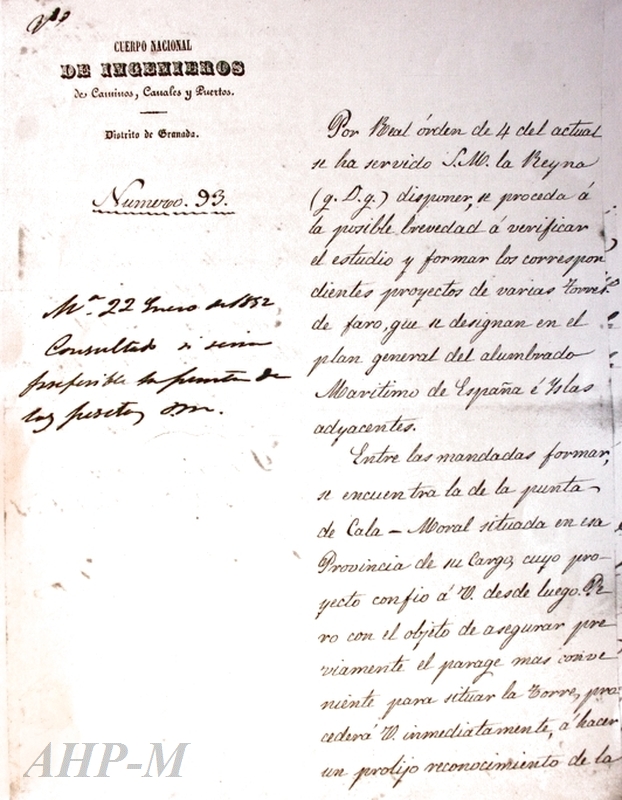 CUERPO NACIONAL
DE INGENIEROS
de Caminos, Canales y Puertos.
Distrito de Granada.
Numero. 93.
M.ª 22 Enero de 1852
Consultado si seria
preferible la punta de
las
Por Real órden de 4 del actual
se ha servido S.M. la Reyna
(q. D. g.) disponer, se proceda á
la posible brevedad á verificar
el estudio y formar los correspon
dientes proyectos de varias Torres
de faro, que se designan en el
plan general del alumbrado
Maritimo de España é Yslas
adyacentes.
Entre las mandadas formar,
se encuentra la de la punta
de Cala-Moral situada en esa
Provincia de su Cargo, cuyo pro-
yecto confio á V. desde luego. Pe
ro con el objeto de asegurar pre
viamente el parage mas conve
niente para situar la Torre, pro-
cederá V. inmediatamente, á hacer
un prolijo reconocimiento de la
AHP-M